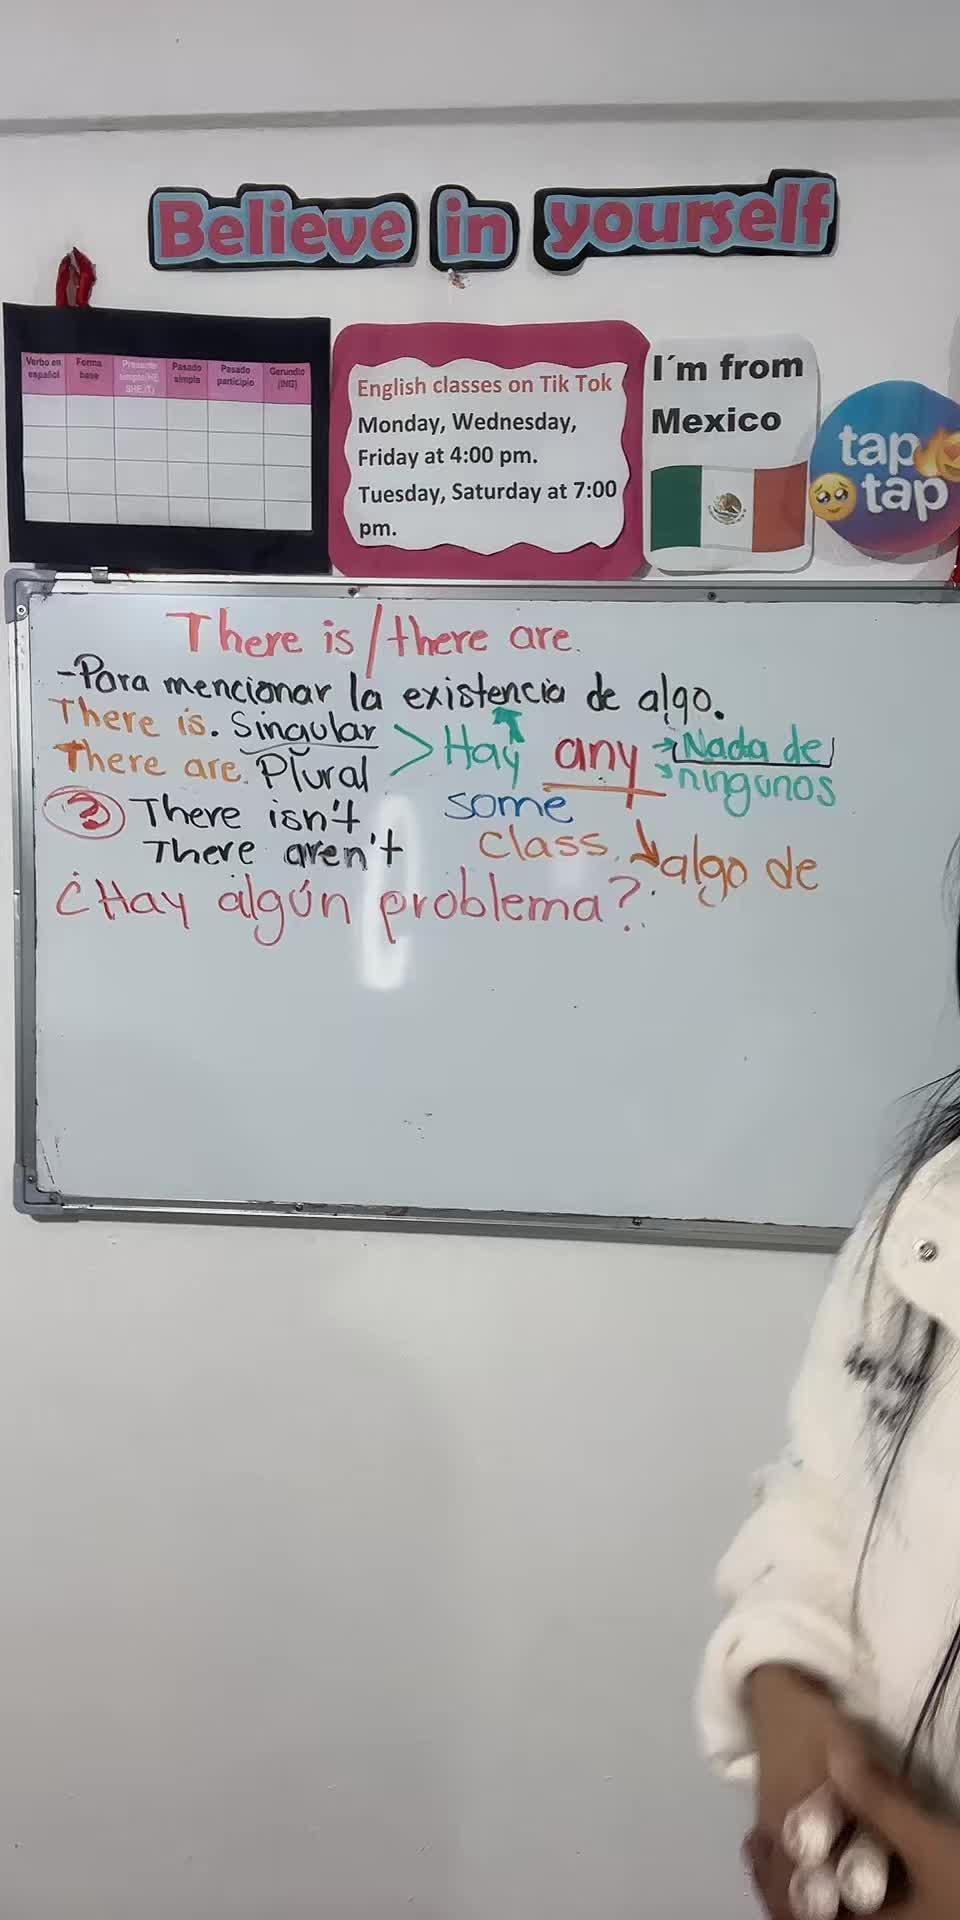 Believe in yourself
Verbo en español
Forma base
Pasado simple
Pasado participio
Gerundio (ING)
English classes on Tik Tok
Monday, Wednesday,
Friday at 4:00 pm.
Tuesday, Saturday at 7:00
pm.
I´m from
Mexico
tap
tap
There is/there are.
-Para mencionar la existencia de algo.
There is. Singular
There are. Plural
> Hay
any
Nada de
ningunos
some
class.
algo de
? There isn't
There aren't
¿Hay algún problema?